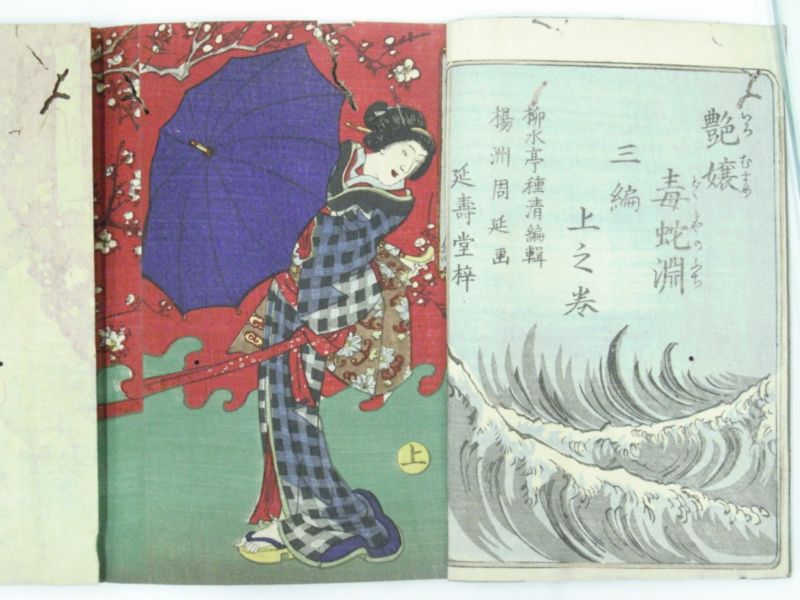 艶嬢
いろ むすめ
毒蛇淵
どくじやのふち
三編
上之巻
柳水亭種清編輯
楊洲周延画
延壽堂梓
上